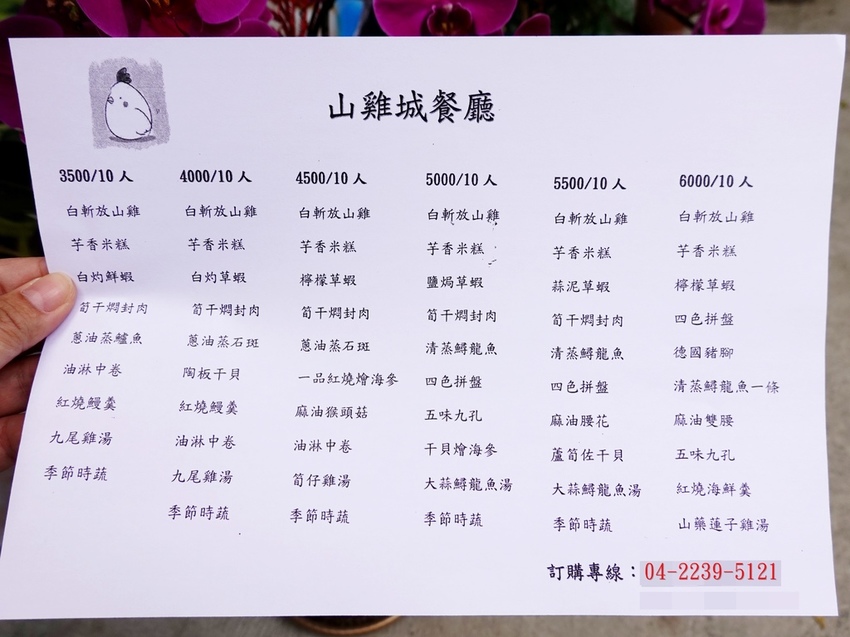 山雞城餐廳
3500/10 人
白斬放山雞
芋香米糕
白灼鮮蝦
筍干燜封肉
蔥油蒸鱸魚
油淋中卷
紅燒鰻羹
九尾雞湯
季節時蔬
4000/10 人
白斬放山雞
芋香米糕
白灼草蝦
筍干燜封肉
蔥油蒸石斑
陶板干貝
紅燒鰻羹
油淋中卷
九尾雞湯
季節時蔬
4500/10 人
白斬放山雞
芋香米糕
檸檬草蝦
筍干燜封肉
蔥油蒸石斑
一品紅燒燴海參
麻油猴頭菇
油淋中卷
筍仔雞湯
季節時蔬
5000/10 人
白斬放山雞
芋香米糕
鹽焗草蝦
筍干燜封肉
清蒸鱘龍魚
四色拼盤
五味九孔
干貝燴海參
大蒜鱘龍魚湯
季節時蔬
5500/10 人
白斬放山雞
芋香米糕
蒜泥草蝦
筍干燜封肉
清蒸鱘龍魚
四色拼盤
麻油腰花
蘆筍佐干貝
大蒜鱘龍魚湯
季節時蔬
6000/10 人
白斬放山雞
芋香米糕
檸檬草蝦
四色拼盤
德國豬腳
清蒸鱘龍魚一條
麻油雙腰
五味九孔
紅燒海鮮羹
山藥蓮子雞湯
訂購專線：04-2239-5121